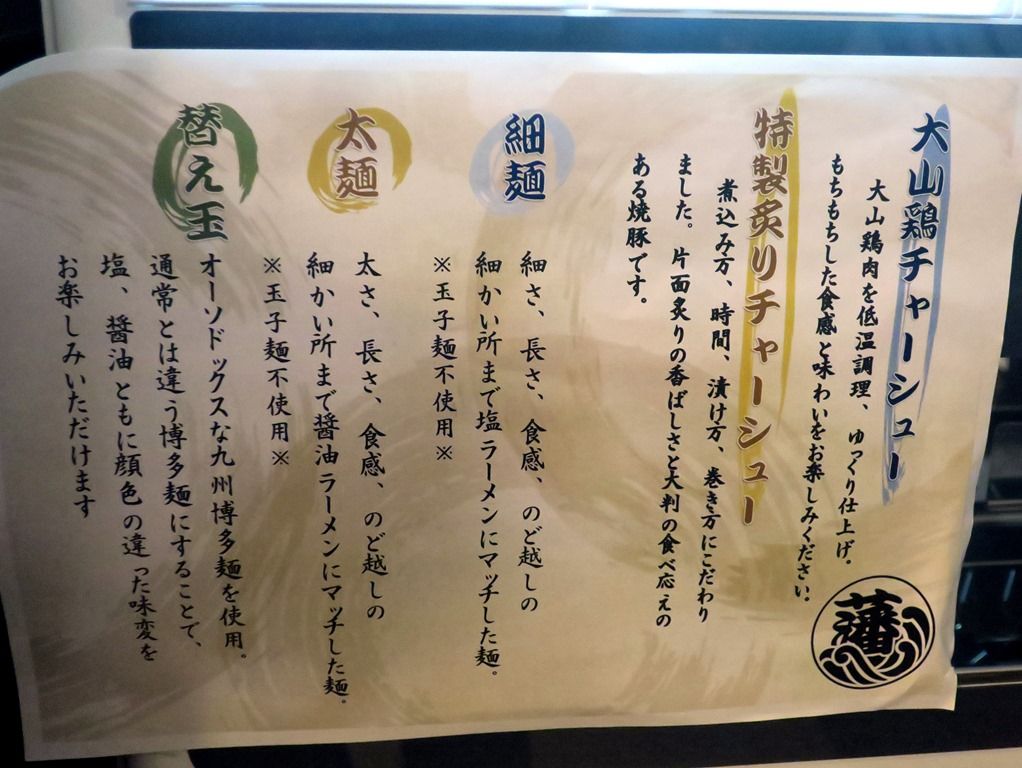 大山鶏チャーシュー
大山鶏肉を低温調理、ゆっくり仕上げ。
もちもちした食感と味わいをお楽しみください。
特製炙りチャーシュー
煮込み方、時間、漬け方、巻き方にこだわり
ました。片面炙りの香ばしさと大判の食べ応えの
ある焼豚です。
細麺
細さ、長さ、食感、のど越しの
細かい所まで塩ラーメンにマッチした麺。
※玉子麺不使用※
太麺
太さ、長さ、食感、のど越しの
細かい所まで醤油ラーメンにマッチした麺。
※玉子麺不使用※
替え玉
オーソドックスな九州博多麺を使用。
通常とは違う博多麺にすることで、
塩、醤油ともに顔色の違った味変を
お楽しみいただけます
藩